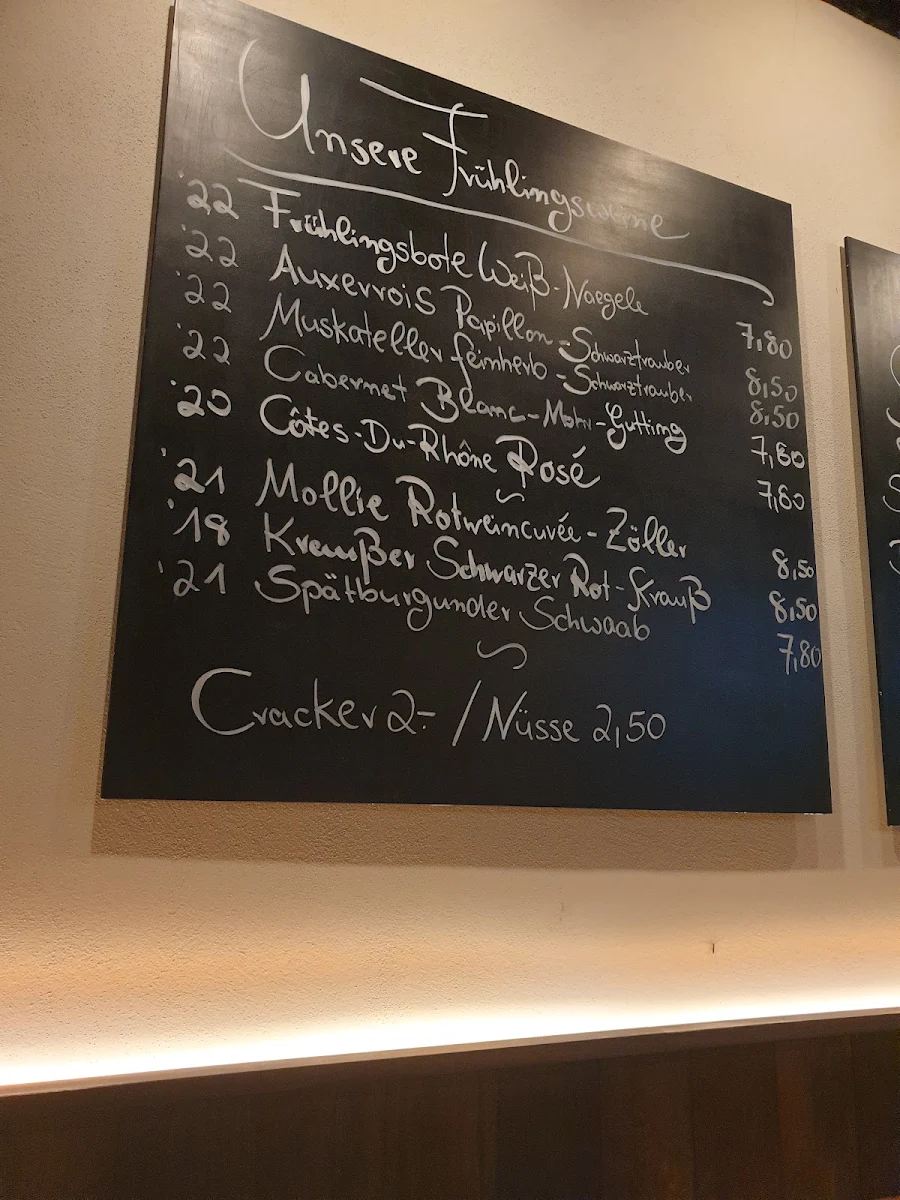 Unsere Frühlingsweine
'22 Frühlingsbote Weiß-Naegele 7,80
'22 Auxerrois Papillon-Schwarztrauber 8,50
'22 Muskateller feinherb-Schwarztrauber 8,50
'22 Cabernet Blanc-Motri-Gutting 7,80
'20 Côtes-Du-Rhône Rosé 7,80
'21 Mollie Rotweincuvée-Zöller 8,50
'18 Kraußer Schwarzer Rot-Krauß 8,50
'21 Spätburgunder Schwaab 7,80
Cracker 2.- / Nüsse 2,50